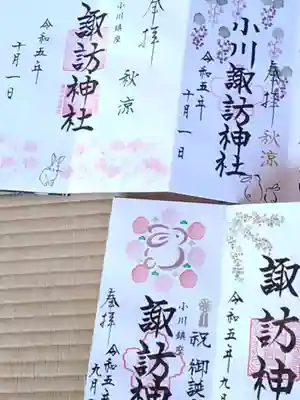 奉拝
秋涼
小川鎮座
諏訪神社
令和五年
十月一日
奉拝
秋涼
小川諏訪神社
令和五年
十月一日
祝 御誕
小川鎮座
諏訪神
奉拝
令和五年
九月
諏訪神
令和五年九